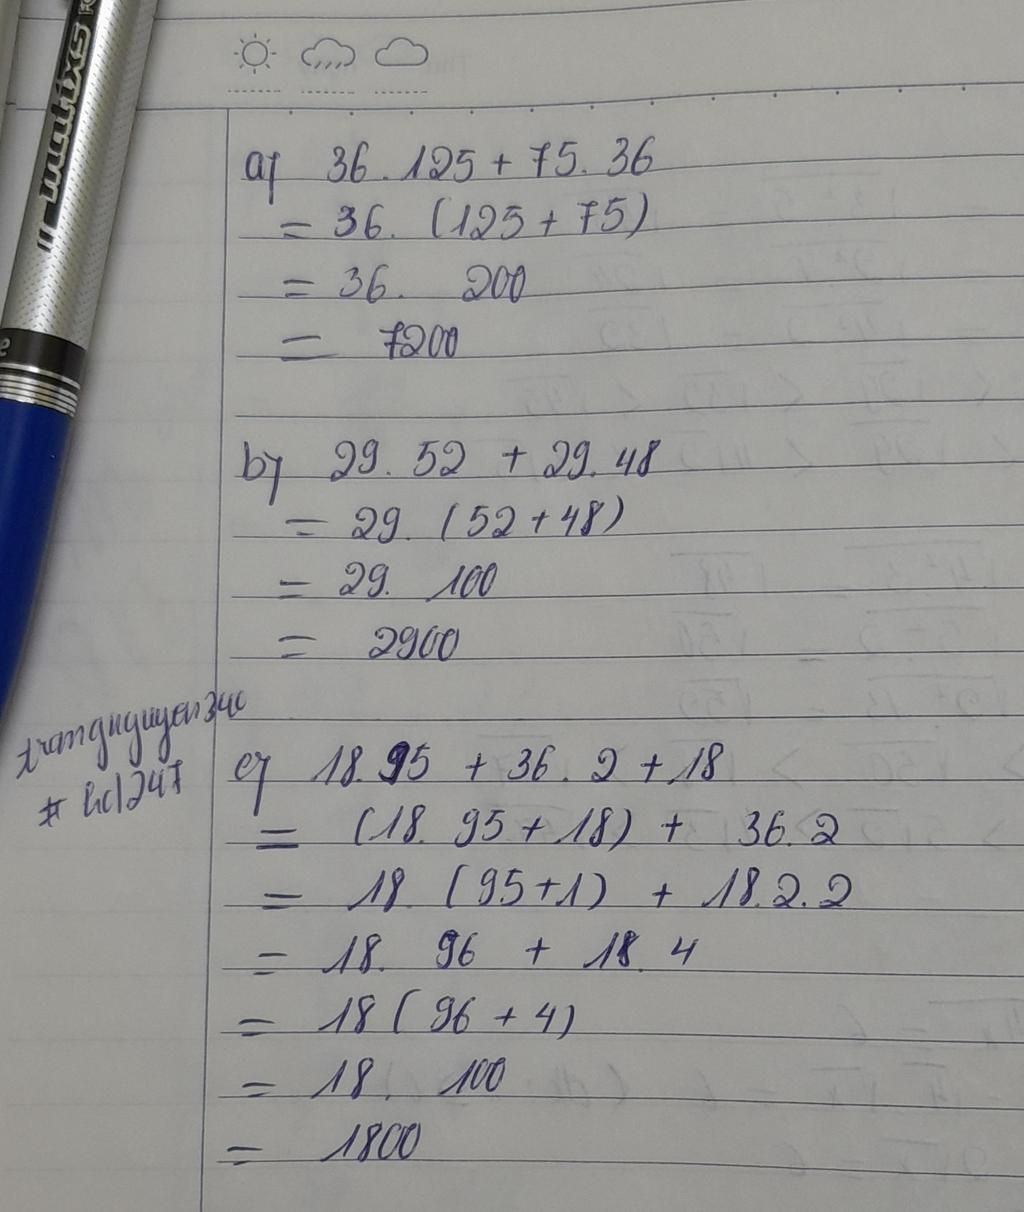 matixs
a) 36.125 + 75.36
= 36. (125 + 75)
= 36. 200
= 7200
b) 29.52 + 29.48
= 29. (52 + 48)
= 29. 100
= 2900
trangnguyen340
# hcl247
c) 18.95 + 36.2 + 18
= (18.95 + 18) + 36.2
= 18. (95+1) + 18.2.2
= 18. 96 + 18.4
= 18 (96 + 4)
= 18. 100
= 1800